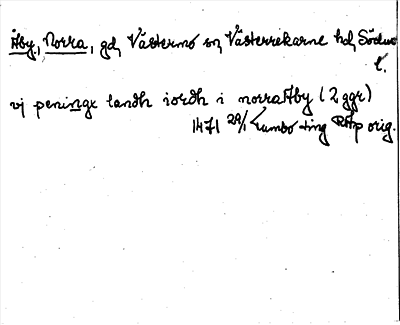 Åby, Norra, gd, Västermo sn, Västerrekarne hd, Söderm
l.
vj peninge landh iordh i norra Åby (2 ggr)
1471 29/1 Kumbo ting RAp orig.